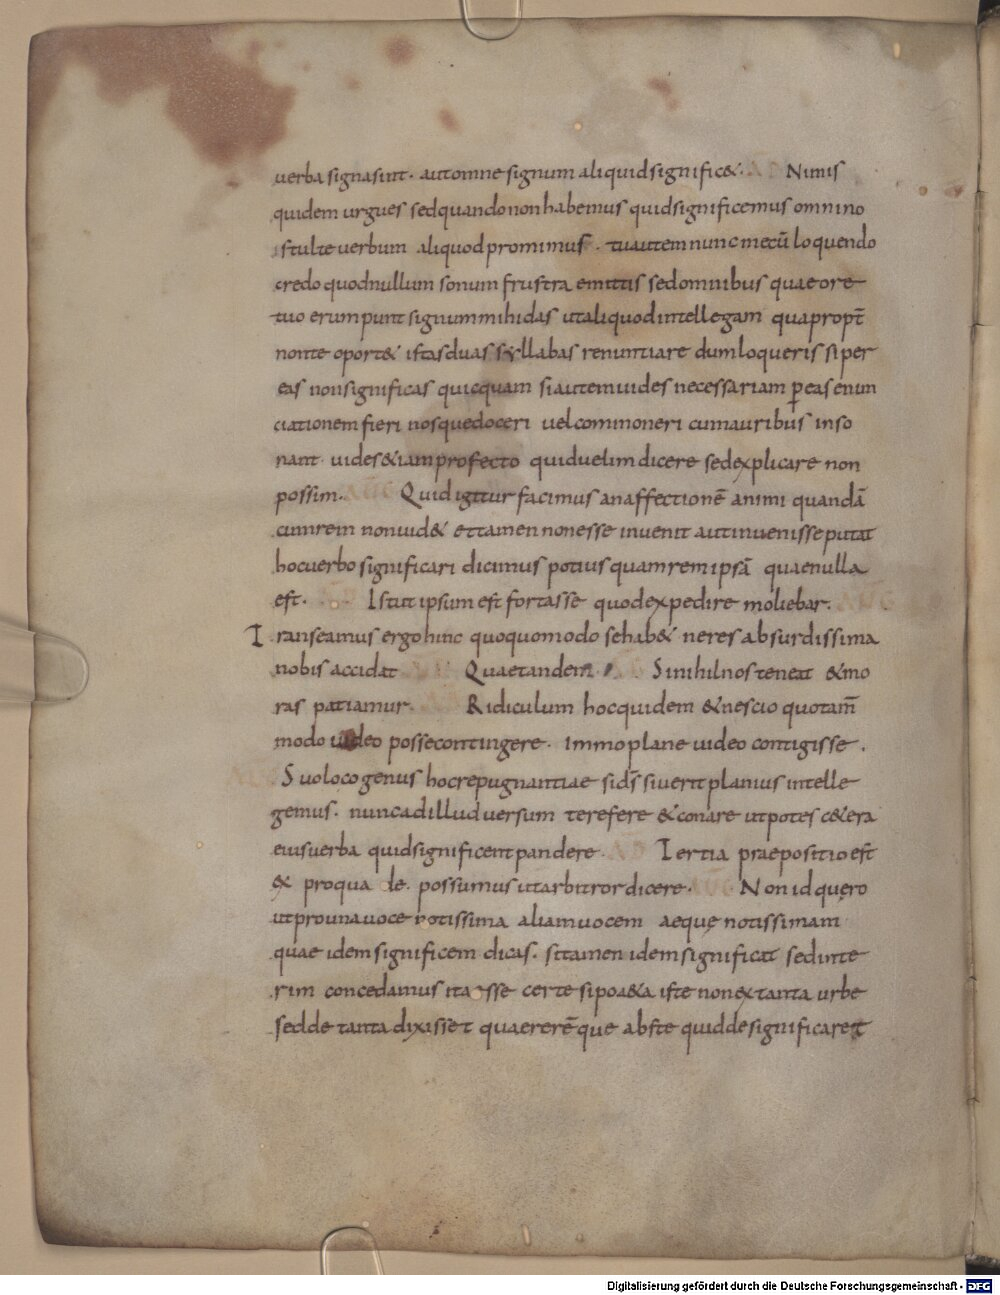 verba signa sint · aut omne signum aliquid signific& · AD Nimis
quidem urgues sed quando non habemus quid significemus omnino
stulte verbum aliquod promimus · tu autem nunc mecū loquendo
credo quod nullum sonum frustra emittis sed omnibus quae ore
tuo erumpunt signum mihi das ut aliquod intellegam quapropt̄
non te oport& istas duas syllabas renuntiare dum loqueris si per
eas non significas quicquam si autem uides necessariam ꝑ eas enun
ciationem fieri nosque doceri uel commoneri cum auribus inso
nant uides & iam profecto quid uelim dicere sed explicare non
possim · AUG Quid igitur facimus an affectionē animi quandā
cum rem non uid& et tamen non esse inuenit aut inuenisse putat
hoc uerbo significari dicimus potius quam rem ipsā quae nulla
est · AD Istut ipsum est fortasse quod expedire moliebar · AUG
Transeamus ergo hinc quoquo modo se hab& ne res absurdissima
nobis accidat AD Quae tandem · AUG Si nihil nos teneat & mo
ras patiamur · AD Ridiculum hoc quidem & nescio quo tam̄
modo uideo posse contingere · immo plane uideo contigisse ·
AUG Suo loco genus hoc repugnantiae si ds̄ siuerit planius intelle
gemus · nunc ad illud versum te refere & conare ut potes c&era
eius uerba quid significent pandere · AD Tertia praepositio est
ex pro qua de possumus ut arbitror dicere · AUG Non id quęro
ut pro una uoce notissima aliam uocem aeque notissimam
quae idem significem dicas · si tamen idem significat sed inte
rim concedamus ita esse certe si po&a iste non ex tanta urbe
sed de tanta dixisset quaererēque abs te quid de significaret
Digitalisierung gefördert durch die Deutsche Forschungsgemeinschaft - DFG